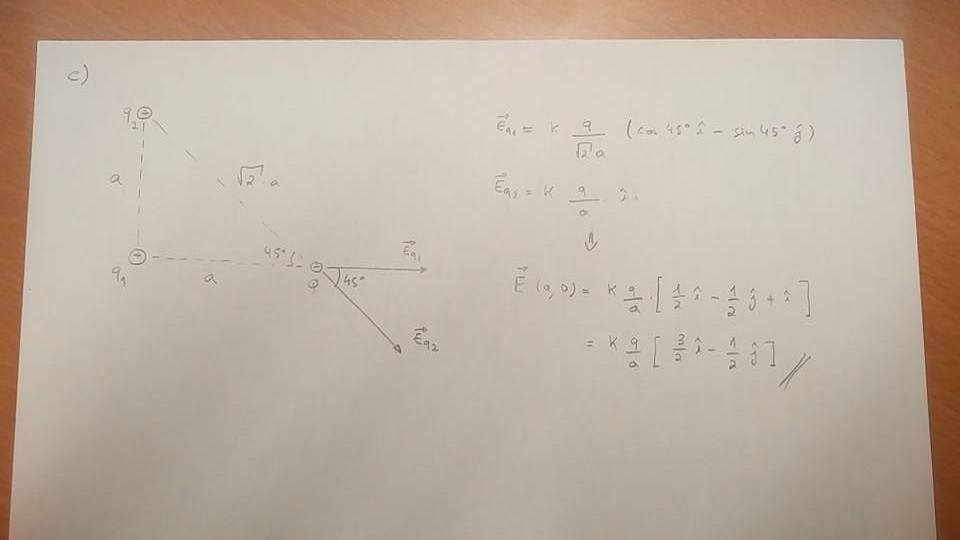 c)
q₂ ⊕
a
√2 · a
q₁ ⊕
a
45°
⊖
45°
E⃗q₁
E⃗q₂
E⃗q₁ = K q/(√2 a) (cos 45° î - sin 45° ĵ)
E⃗q₂ = K q/a · î
⇓
E⃗ (a, 0) = K q/a · [1/2 î - 1/2 ĵ + î]
= K q/a [3/2 î - 1/2 ĵ]